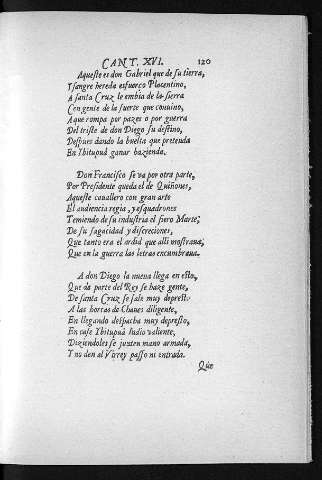 CANT. XVI. 120
Aqueste es don Gabriel que de su tierra,
Y sangre hereda esfuerço Placentino,
A santa Cruz le embia de la sierra
Con gente de la suerte que conuino,
Aque rompa por pazes o por guerra
Del triste de don Diego su destino,
Despues dando la buelta que pretenda
En Ibitupuá ganar hazienda.
Don Francisco se va por otra parte,
Por Presidente queda el de Quiñones,
Aqueste cauallero con gran arte
El audiencia regia, y esquadrones
Temiendo de su industria el fiero Marte,
De su sagacidad y discreciones,
Que tanto era el ardid que alli mostraua,
Que en la guerra las letras encumbraua.
A don Diego la nueua llega en esto,
Que da parte del Rey se haze gente,
De santa Cruz se sale muy de presto
A las horcas de Chaues diligente,
En llegando despacha muy de presto,
En casa Ibitupuá Indio valiente,
Diziendoles se junten mano armada,
Y no den al Virrey passo ni entrada.
Que